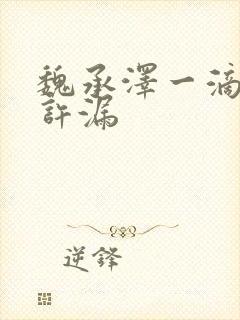 魏承澤一滴
許漏
逆鋒